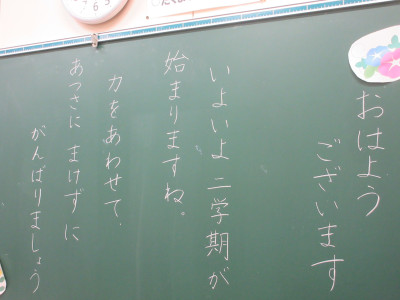 おはよう
ございます
いよいよ二学期が
始まりますね。
力をあわせて、
あつさにまけずに
がんばりましょう